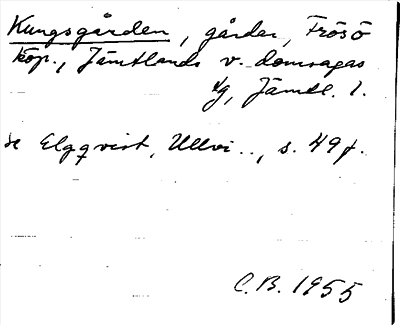 Kungsgården, gårdar, Frösö
köp., Jämtlands v. domsagas
tg, Jämtl. l.
se Elgqvist, Ullvi.., s. 49f.
C.B. 1955